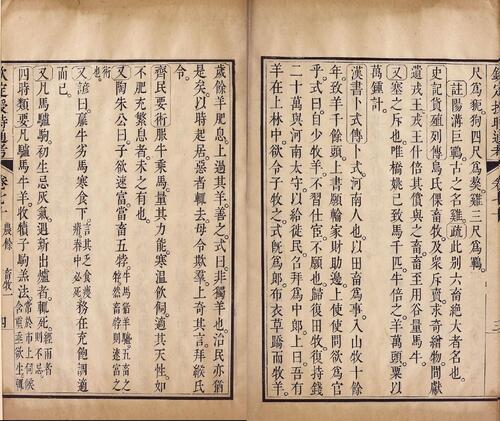 尺爲豟狗四尺爲獒雞三尺爲鶤
註陽溝巨鶤古之名雞疏此別六畜絕大者名也
史記貨殖列傳烏氏倮畜牧及衆斥賣求奇繒物間獻
遺戎王戎王什倍其償與之畜畜至用谷量馬牛
又塞之斥也唯橋姚已致馬千匹牛倍之羊萬頭粟以
萬鍾計
漢書卜式傳卜式河南人也以田畜爲事入山牧十餘
年致羊千餘頭上書願輸家財助邊上使使問欲爲官
乎式曰自少牧羊不習仕宦不願也歸復田牧復持錢
二十萬與河南太守以給徙民召拜爲中郎上曰吾有
羊在上林中欲令子牧之式旣爲郎布衣草蹻而牧羊
歲餘羊肥息上過其羊善之式曰非獨羊也治民亦猶
是矣以時起居惡者輒去毋令敗羣上奇其言拜緱氏
令
齊民要術服牛乘馬量其力能寒溫飲飼適其天性如
不肥充繁息者未之有也
又陶朱公曰子欲速富當畜五牸牛馬猪羊驢五畜之牸然畜牸則速富之
術也
又諺曰羸牛劣馬寒食下言其乏食瘦瘠春中必死務在充飽調適
而已
又凡馬驢駒初生忌灰氣遇新出爐者輒死經雨者則不忌
四時類要凡驢馬牛羊收犢子駒羔法常於市上伺候含重垂欲生輒
欽定授時通考 卷七十 農餘 畜牧一 四